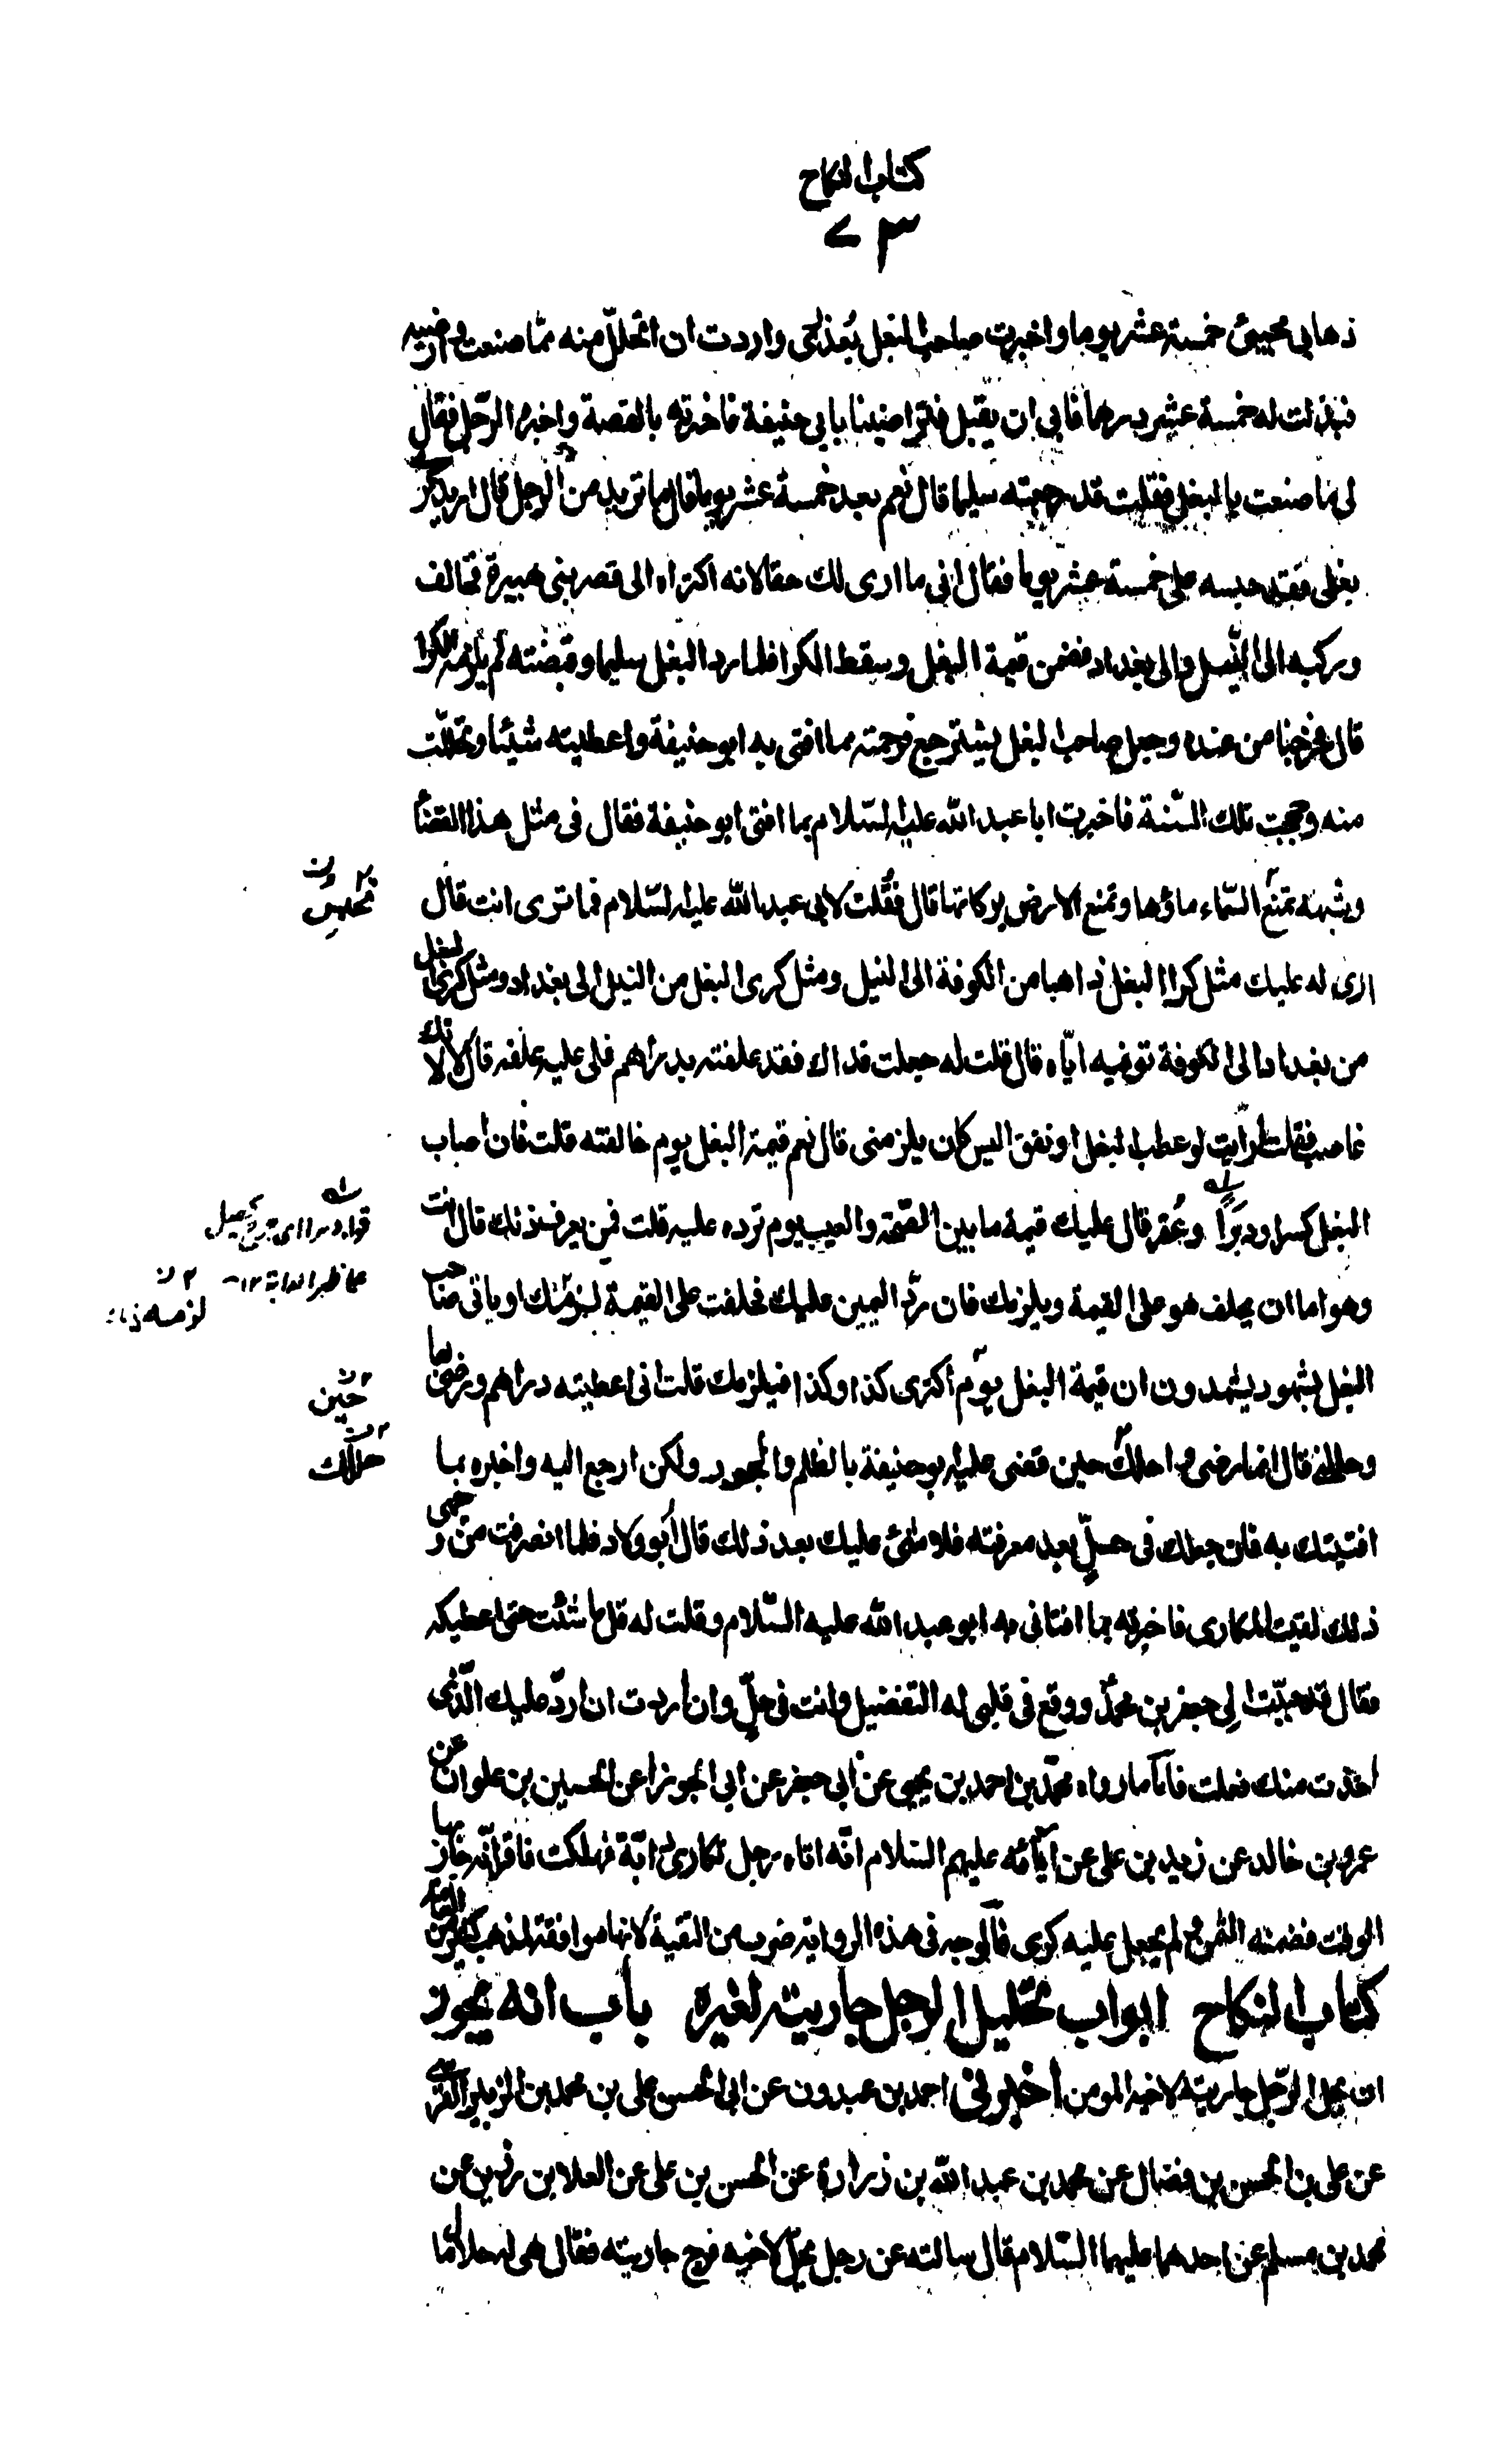 كتاب النكاح
٧٣
ذهابي ومجيئى خمسة عشر يوما واخبرت صاحب البغل بعذرى واردت ان اتحلل منه مما صنعت وارضيه
فبذلت له خمسة عشر درهما فابى ان يقبل فتراضينا بابي حنيفة فاخبرته بالقصة واخبره الرجل فقال
لى ما صنعت بالبغل فقلت قد رجعته سليما قال نعم بعد خمسة عشر يوما قال ما تريد من الرجل قال اريد كرى
بغلى فقد حبسه على خمسة عشر يوما فقال انى ما ارى لك حقا لانه اكتراه الى قصر بنى هبيرة فخالف
وركبه الى النيل والى بغداد فضمن قيمة البغل وسقط الكرا فلما رد البغل سليما وقبضته لم يلزمه الكرا
قال فخرجنا من عنده وجعل صاحب البغل يسترجع فرحمته مما افتى به ابو حنيفة واعطيته شيئا وتحللت
منه وحججت تلك السنة فاخبرت ابا عبد الله عليه السلام بما افتى ابو حنيفة فقال فى مثل هذا القضأ
وشبهه تمنع السماء ماؤها وتمنع الارض بركاتها قال فقلت لابى عبد الله عليه السلام فما ترى انت قال
ارى له عليك مثل كرا البغل ذاهبا من الكوفة الى النيل ومثل كرى البغل من النيل الى بغداد ومثل كرى البغل
من بغداد الى الكوفة توفيه اياه قال قلت له جعلت فداك فقد علفته بدراهم فلى عليه علفه قال لا لانك
غاصب فقلت ارايت لو عطب البغل او نفق اليس كان يلزمنى قال نعم قيمة البغل يوم خالفته قلت فان اصاب
البغل كسر او دبرا وعقر قال عليك قيمة ما بين الصحة والعيب يوم ترده عليه قلت فمن يعرف ذلك قال انت
وهو اما ان يحلف هو على القيمة ويلزمك فان رد اليمين عليك فحلفت على القيمة لزمك او ياتى صاحب
البغل بشهود يشهدون ان قيمة البغل يوم اكترى كذا وكذا فيلزمك قلت انى اعطيته دراهم ورضى بها
وحللنى قال انما رضى واحلك حين قضى عليه ابو حنيفة بالظلم والجور ولكن ارجع اليه واخبره بما
افتيتك به فان جعلك فى حل بعد معرفته فلا شئ عليك بعد ذلك قال ابو ولاد فلما انصرفت من وجهى
ذلك لقيت المكارى فاخبرته بما افتانى به ابو عبد الله عليه السلام وقلت له قل ما شئت حتى اعطيكه
فقال قد حببت الى جعفر بن محمد ووقع فى قلبى له التفضيل وانت فى حل وان اردت ان ارد عليك الذى
اخذت منك فعلت فاما ما رواه محمد بن احمد بن يحيى عن ابى جعفر عن ابى الجوزا عن الحسين بن علوان عن
عمرو بن خالد عن زيد بن على عن ابآئه عليهم السلام انه اتاه رجل تكارى دابة فهلكت فاقر انه جاز بها
الوقت فضمنه الثمن ولم يجعل عليه كرى فالوجه فى هذه الرواية ضرب من التقية لانها موافقة لمذهب كثير من العامة
كتاب النكاح ابواب تحليل الرجل جاريته لغيره باب انه يجوز
ان يحل الرجل جاريته لاخيه المومن اخبرنى احمد بن عبدون عن ابى الحسن على بن محمد بن الزبير القرشى
عن على بن الحسن بن فضال عن محمد بن عبد الله بن زرارة عن الحسن بن على عن العلا بن رزين عن
محمد بن مسلم عن احدهما عليهما السلام قال سالته عن رجل يحل لاخيه فرج جاريته فقال هى له حلال ما
تحبس
حين
حللك